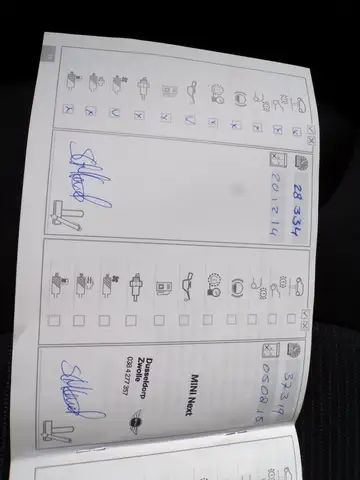 28334
20.2.14
37319
050815
MINI Next
Dusseldorp
Zwolle
038 4 277 357